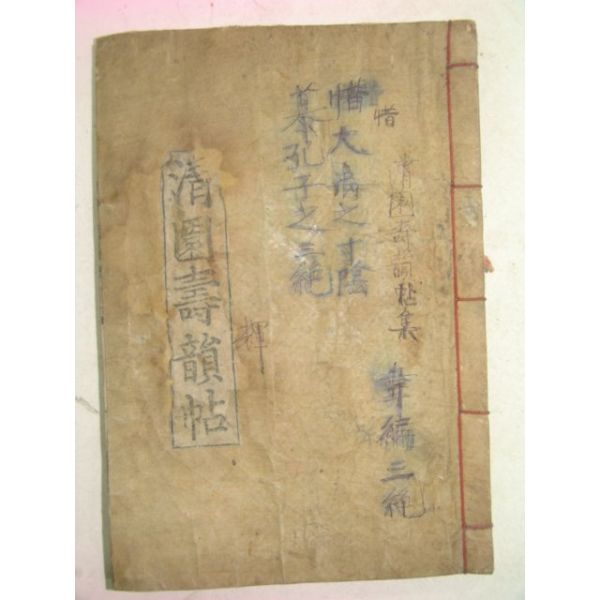 清園壽韻帖集
韋編三絶
惜
惜大禹之寸陰
慕孔子之三絶
輝
清園壽韻帖